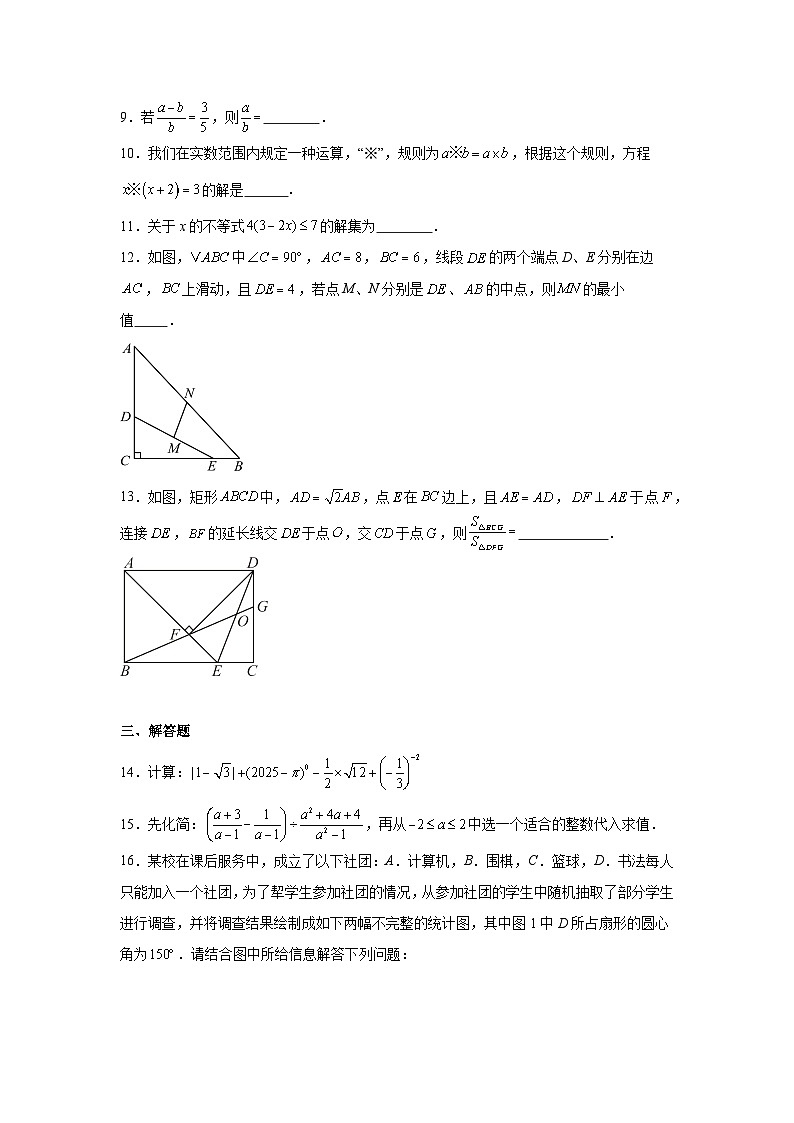 9．若(a－b)/b＝3/5，则a/b＝________．
10．我们在实数范围内规定一种运算，“※”，规则为a※b＝a×b，根据这个规则，方程
x※(x＋2)＝3的解是______．
11．关于x的不等式4(3－2x)≤7的解集为________．
12．如图，∨ABC中∠C＝90°，AC＝8，BC＝6，线段DE的两个端点D、E分别在边
AC，BC上滑动，且DE＝4，若点M、N分别是DE、AB的中点，则MN的最小
值_____．
A
N
D
M
C
E
B
13．如图，矩形ABCD中，AD＝√2AB，点E在BC边上，且AE＝AD，DF⊥AE于点F，
连接DE，BF的延长线交DE于点O，交CD于点G，则S△ECG/S△DFG＝_____________．
A
D
G
O
F
B
E
C
三、解答题
14．计算：|1－√3|＋(2025－π)⁰－1/2×√12＋(－1/3)⁻²
15．先化简：((a＋3)/(a－1)－1/(a－1))÷(a²＋4a＋4)/(a²－1)，再从－2≤a≤2中选一个适合的整数代入求值．
16．某校在课后服务中，成立了以下社团：A．计算机，B．围棋，C．篮球，D．书法每人
只能加入一个社团，为了犁学生参加社团的情况，从参加社团的学生中随机抽取了部分学生
进行调查，并将调查结果绘制成如下两幅不完整的统计图，其中图1中D所占扇形的圆心
角为150°．请结合图中所给信息解答下列问题：